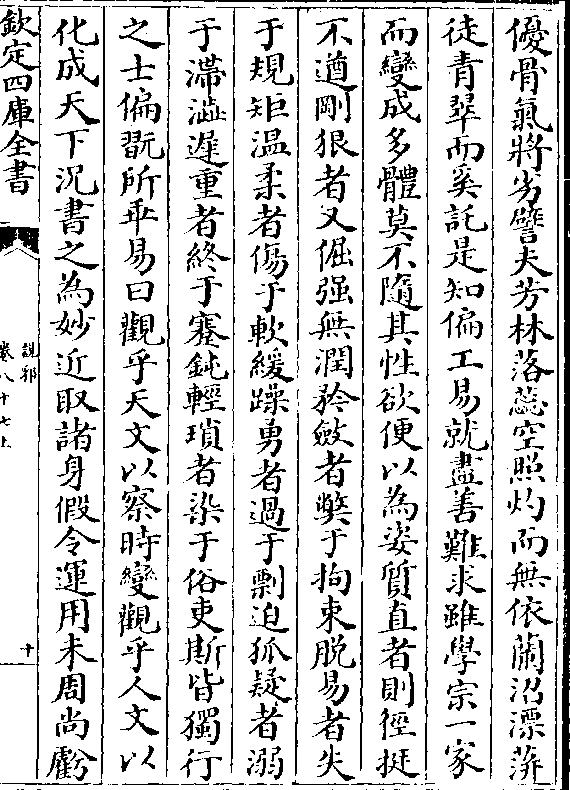 優骨氣將劣譬夫芳林落蕊空照灼而無依蘭沼漂蓱
徒青翠而奚託是知偏工易就盡善難求雖學宗一家
而變成多體莫不隨其性欲便以為姿質直者則徑挺
不遒剛狠者又倔强無潤矜斂者弊于拘束脱易者失
于規矩温柔者傷于軟緩躁勇者過于剽迫狐疑者溺
于滯澁遲重者終于蹇鈍輕瑣者染于俗吏斯皆獨行
之士偏翫所乖易曰觀乎天文以察時變觀乎人文以
化成天下況書之為妙近取諸身假令運用未周尚虧
欽定四庫全書
說郛
卷八十七上
十